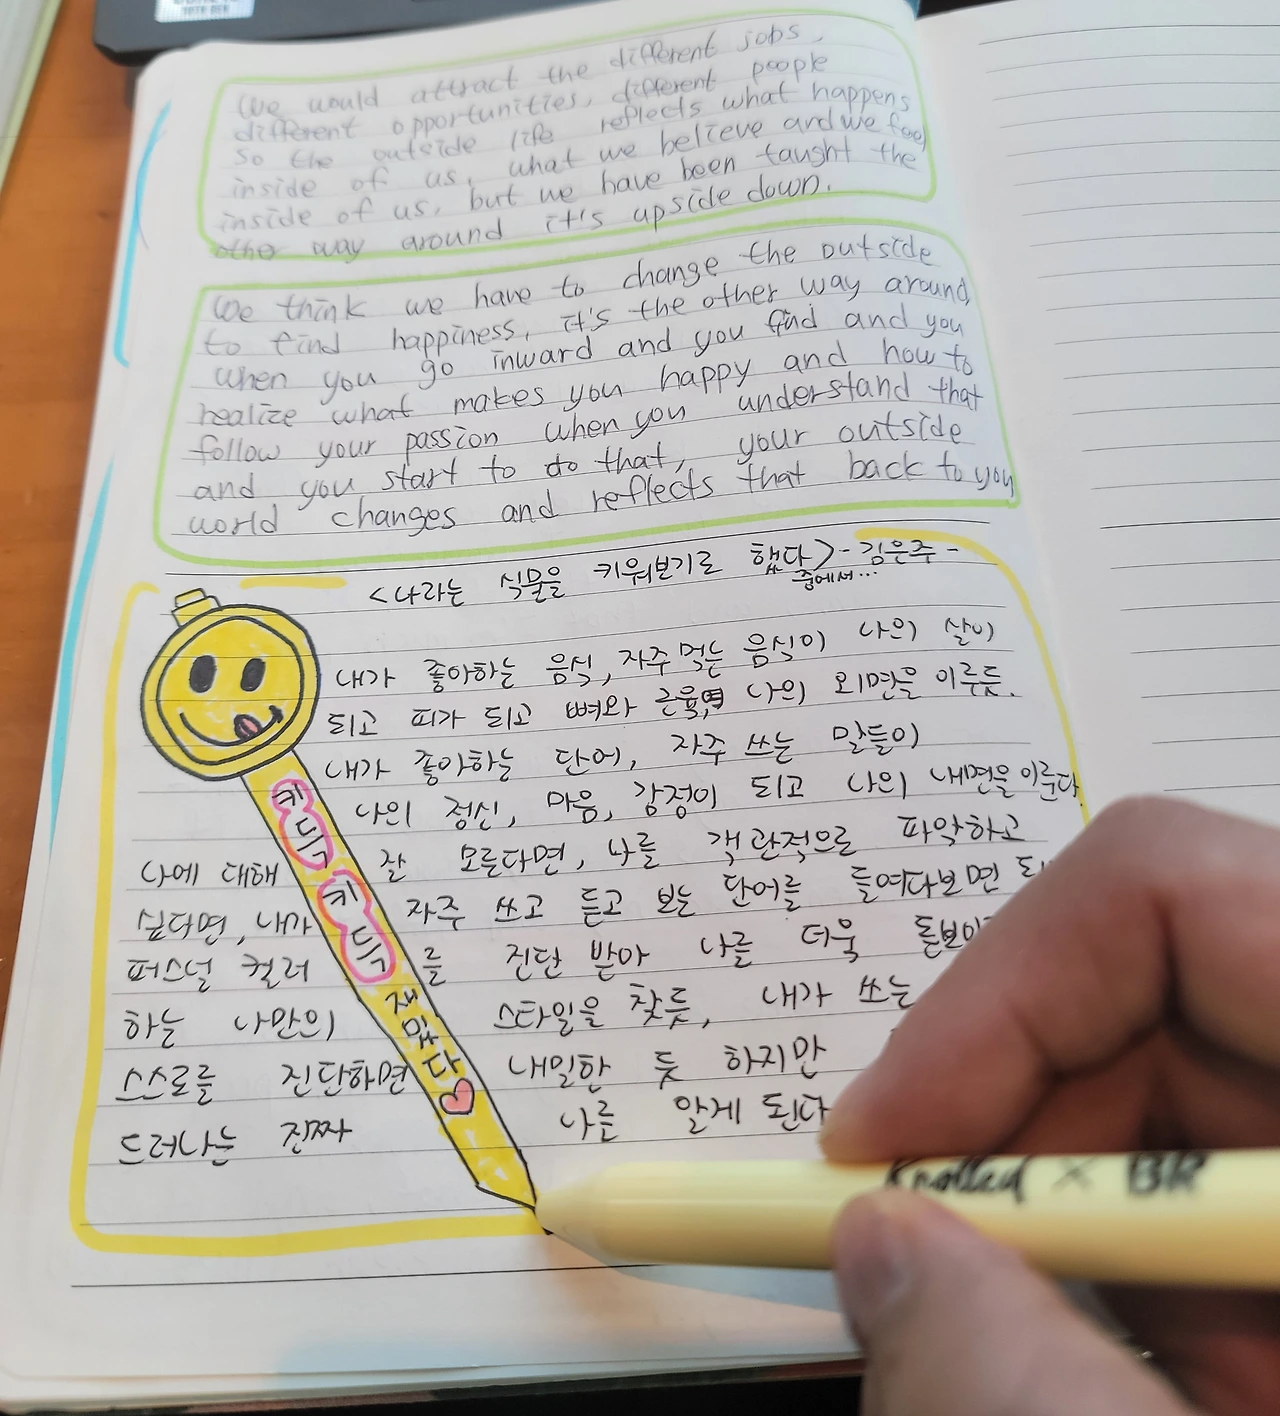 We would attract the different jobs,
different opportunities, different people
so the outside life reflects what happens
inside of us, what we believe and we feel
inside of us, but we have been taught the
other way around it's upside down.
We think we have to change the outside
to find happiness, it's the other way around,
when you go inward and you find and you
realize what makes you happy and how to
follow your passion when you understand that
and you start to do that, your outside
world changes and reflects that back to you
<나라는 식물을 키워보기로 했다> - 김은주 -
중에서...
내가 좋아하는 음식, 자주 먹는 음식이 나의 살이
되고 피가 되고 뼈와 근육 나의 외면을 이루듯.
내가 좋아하는 단어, 자주 쓰는 말들이
나의 정신, 마음, 감정이 되고 나의 내면을 이룬다.
나에 대해 잘 모른다면, 나를 객관적으로 파악하고
싶다면, 내가 자주 쓰고 듣고 보는 단어를 들여다보면
퍼스널 컬러를 진단 받아 나를 더욱
하는 나만의 스타일을 찾듯, 내가 쓰는
스스로를 진단하면 내밀한 듯 하지만
드러나는 진짜 나를 알게 된다
키득
키득
재밌다
Knotted × BR